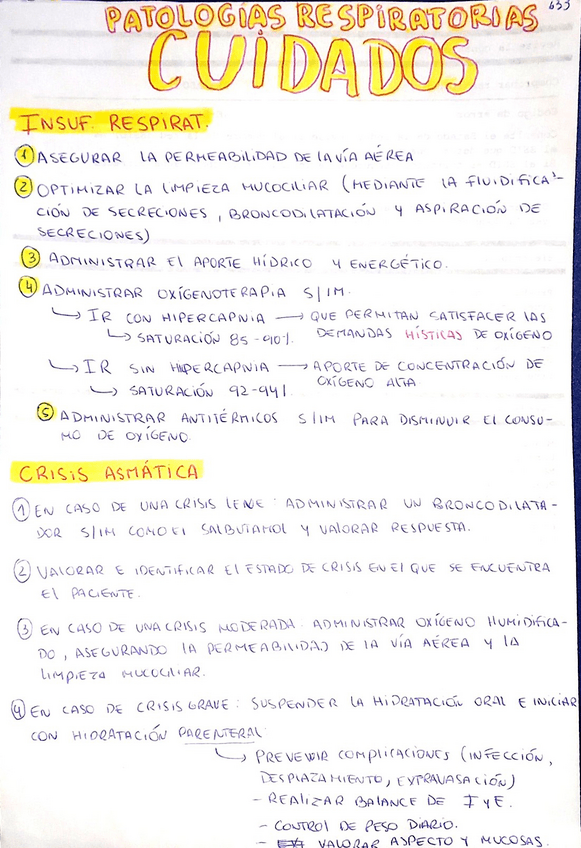 633
PATOLOGÍAS RESPIRATORIAS
CUIDADOS
INSUF. RESPIRAT.
1 ASEGURAR LA PERMEABILIDAD DE LA VÍA AÉREA
2 OPTIMIZAR LA LIMPIEZA MUCOCILIAR (MEDIANTE LA FLUIDIFICA-
CIÓN DE SECRECIONES, BRONCODILATACIÓN Y ASPIRACIÓN DE
SECRECIONES)
3 ADMINISTRAR EL APORTE HÍDRICO Y ENERGÉTICO.
4 ADMINISTRAR OXÍGENOTERAPIA S/IM.
↳ IR CON HIPERCAPNIA → QUE PERMITAN SATISFACER LAS
↳ SATURACIÓN 85-90%. DEMANDAS HÍSTICAS DE OXÍGENO
↳ IR SIN HIPERCAPNIA → APORTE DE CONCENTRACIÓN DE
↳ SATURACIÓN 92-94%. OXÍGENO ALTA
5 ADMINISTRAR ANTITÉRMICOS S/IM PARA DISMINUIR EL CONSU-
MO DE OXÍGENO.
CRISIS ASMÁTICA
1 EN CASO DE UNA CRISIS LEVE: ADMINISTRAR UN BRONCODILATA-
DOR S/IM COMO EL SALBUTAMOL Y VALORAR RESPUESTA.
2 VALORAR E IDENTIFICAR EL ESTADO DE CRISIS EN EL QUE SE ENCUENTRA
EL PACIENTE.
3 EN CASO DE UNA CRISIS MODERADA: ADMINISTRAR OXÍGENO HUMIDIFICA-
DO, ASEGURANDO LA PERMEABILIDAD DE LA VÍA AÉREA Y LA
LIMPIEZA MUCOCILIAR.
4 EN CASO DE CRISIS GRAVE: SUSPENDER LA HIDRATACIÓN ORAL E INICIAR
CON HIDRATACIÓN PARENTERAL
↳ PREVENIR COMPLICACIONES (INFECCIÓN,
DESPLAZAMIENTO, EXTRAVASACIÓN)
- REALIZAR BALANCE DE I y E.
- CONTROL DE PESO DIARIO.
- VALORAR ASPECTO Y MUCOSAS.